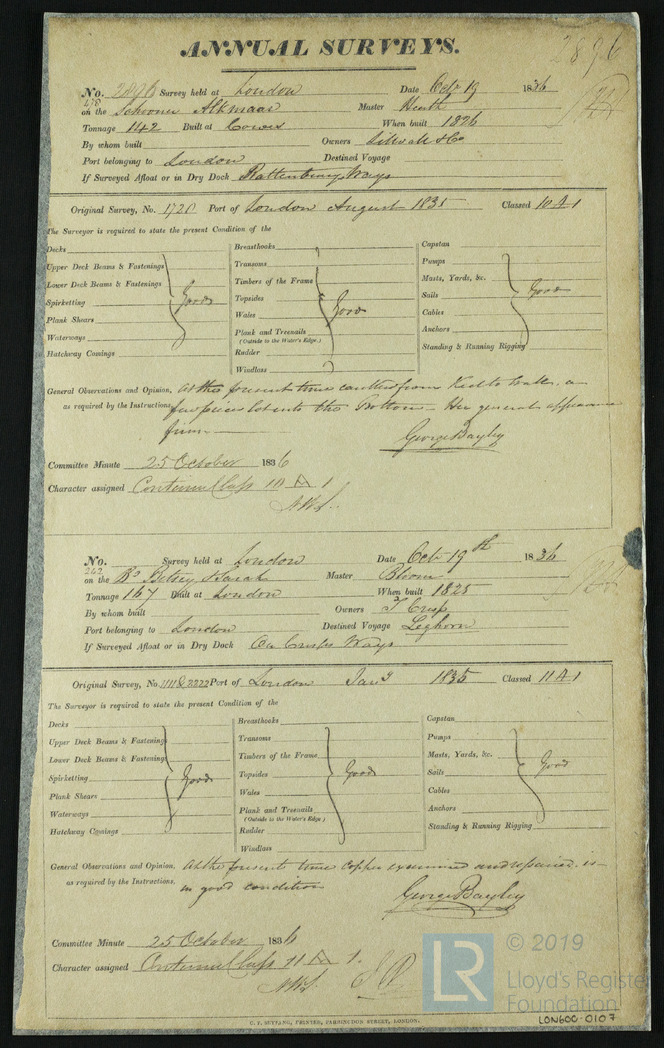 ANNUAL SURVEYS.
2896
No. 2896 Survey held at London Date Octr 19 1836
478
on the Schooner Alkmaar Master Heath
Tonnage 142 Built at Cowes When built 1826
By whom built Owners & Co
Port belonging to London Destined Voyage
If Surveyed Afloat or in Dry Dock Rattenbury Ways
Original Survey, No. 1728 Port of London August 1835 Classed 10 A 1
The Surveyor is required to state the present Condition of the
Decks
Upper Deck Beams & Fastenings
Lower Deck Beams & Fastenings
Spirketting
Plank Shears
Waterways
Hatchway Comings
Good
Breasthooks
Transoms
Timbers of the Frame
Topsides
Wales
Plank and Treenails
(Outside to the Water's Edge.)
Rudder
Windlass
Good
Capstan
Pumps
Masts, Yards, &c.
Sails
Cables
Anchors
Standing & Running Rigging
Good
General Observations and Opinion, At the present time caulked from Keel to Wales, a
as required by the Instructions, few pieces let into the Bottom - Her general appearance
firm
George Bayley
Committee Minute 25 October 1836
Character assigned Continued Class 10 A 1
No. Survey held at London Date Octr 19th 1836
262
on the Bg Betsey & Sarah Master Bloom
Tonnage 167 Built at London When built 1825
By whom built Owners T Crisp
Port belonging to London Destined Voyage Leghorn
If Surveyed Afloat or in Dry Dock On Crisps Ways
Original Survey, No. 1111 & 2222 Port of London Jany 1835 Classed 11 A 1
The Surveyor is required to state the present Condition of the
Decks
Upper Deck Beams & Fastenings
Lower Deck Beams & Fastenings
Spirketting
Plank Shears
Waterways
Hatchway Comings
Good
Breasthooks
Transoms
Timbers of the Frame
Topsides
Wales
Plank and Treenails
(Outside to the Water's Edge)
Rudder
Windlass
Good
Capstan
Pumps
Masts, Yards, &c.
Sails
Cables
Anchors
Standing & Running Rigging
Good
General Observations and Opinion, At the present time copper examined and repaired is
as required by the Instructions, in good condition
George Bayley
Committee Minute 25 October 1836
Character assigned Continued Class 11 A 1.
LR
© 2019
Lloyd's Register
Foundation
LON600-0107
C. F. SEYFANG, PRINTER, FARRINGDON STREET, LONDON.